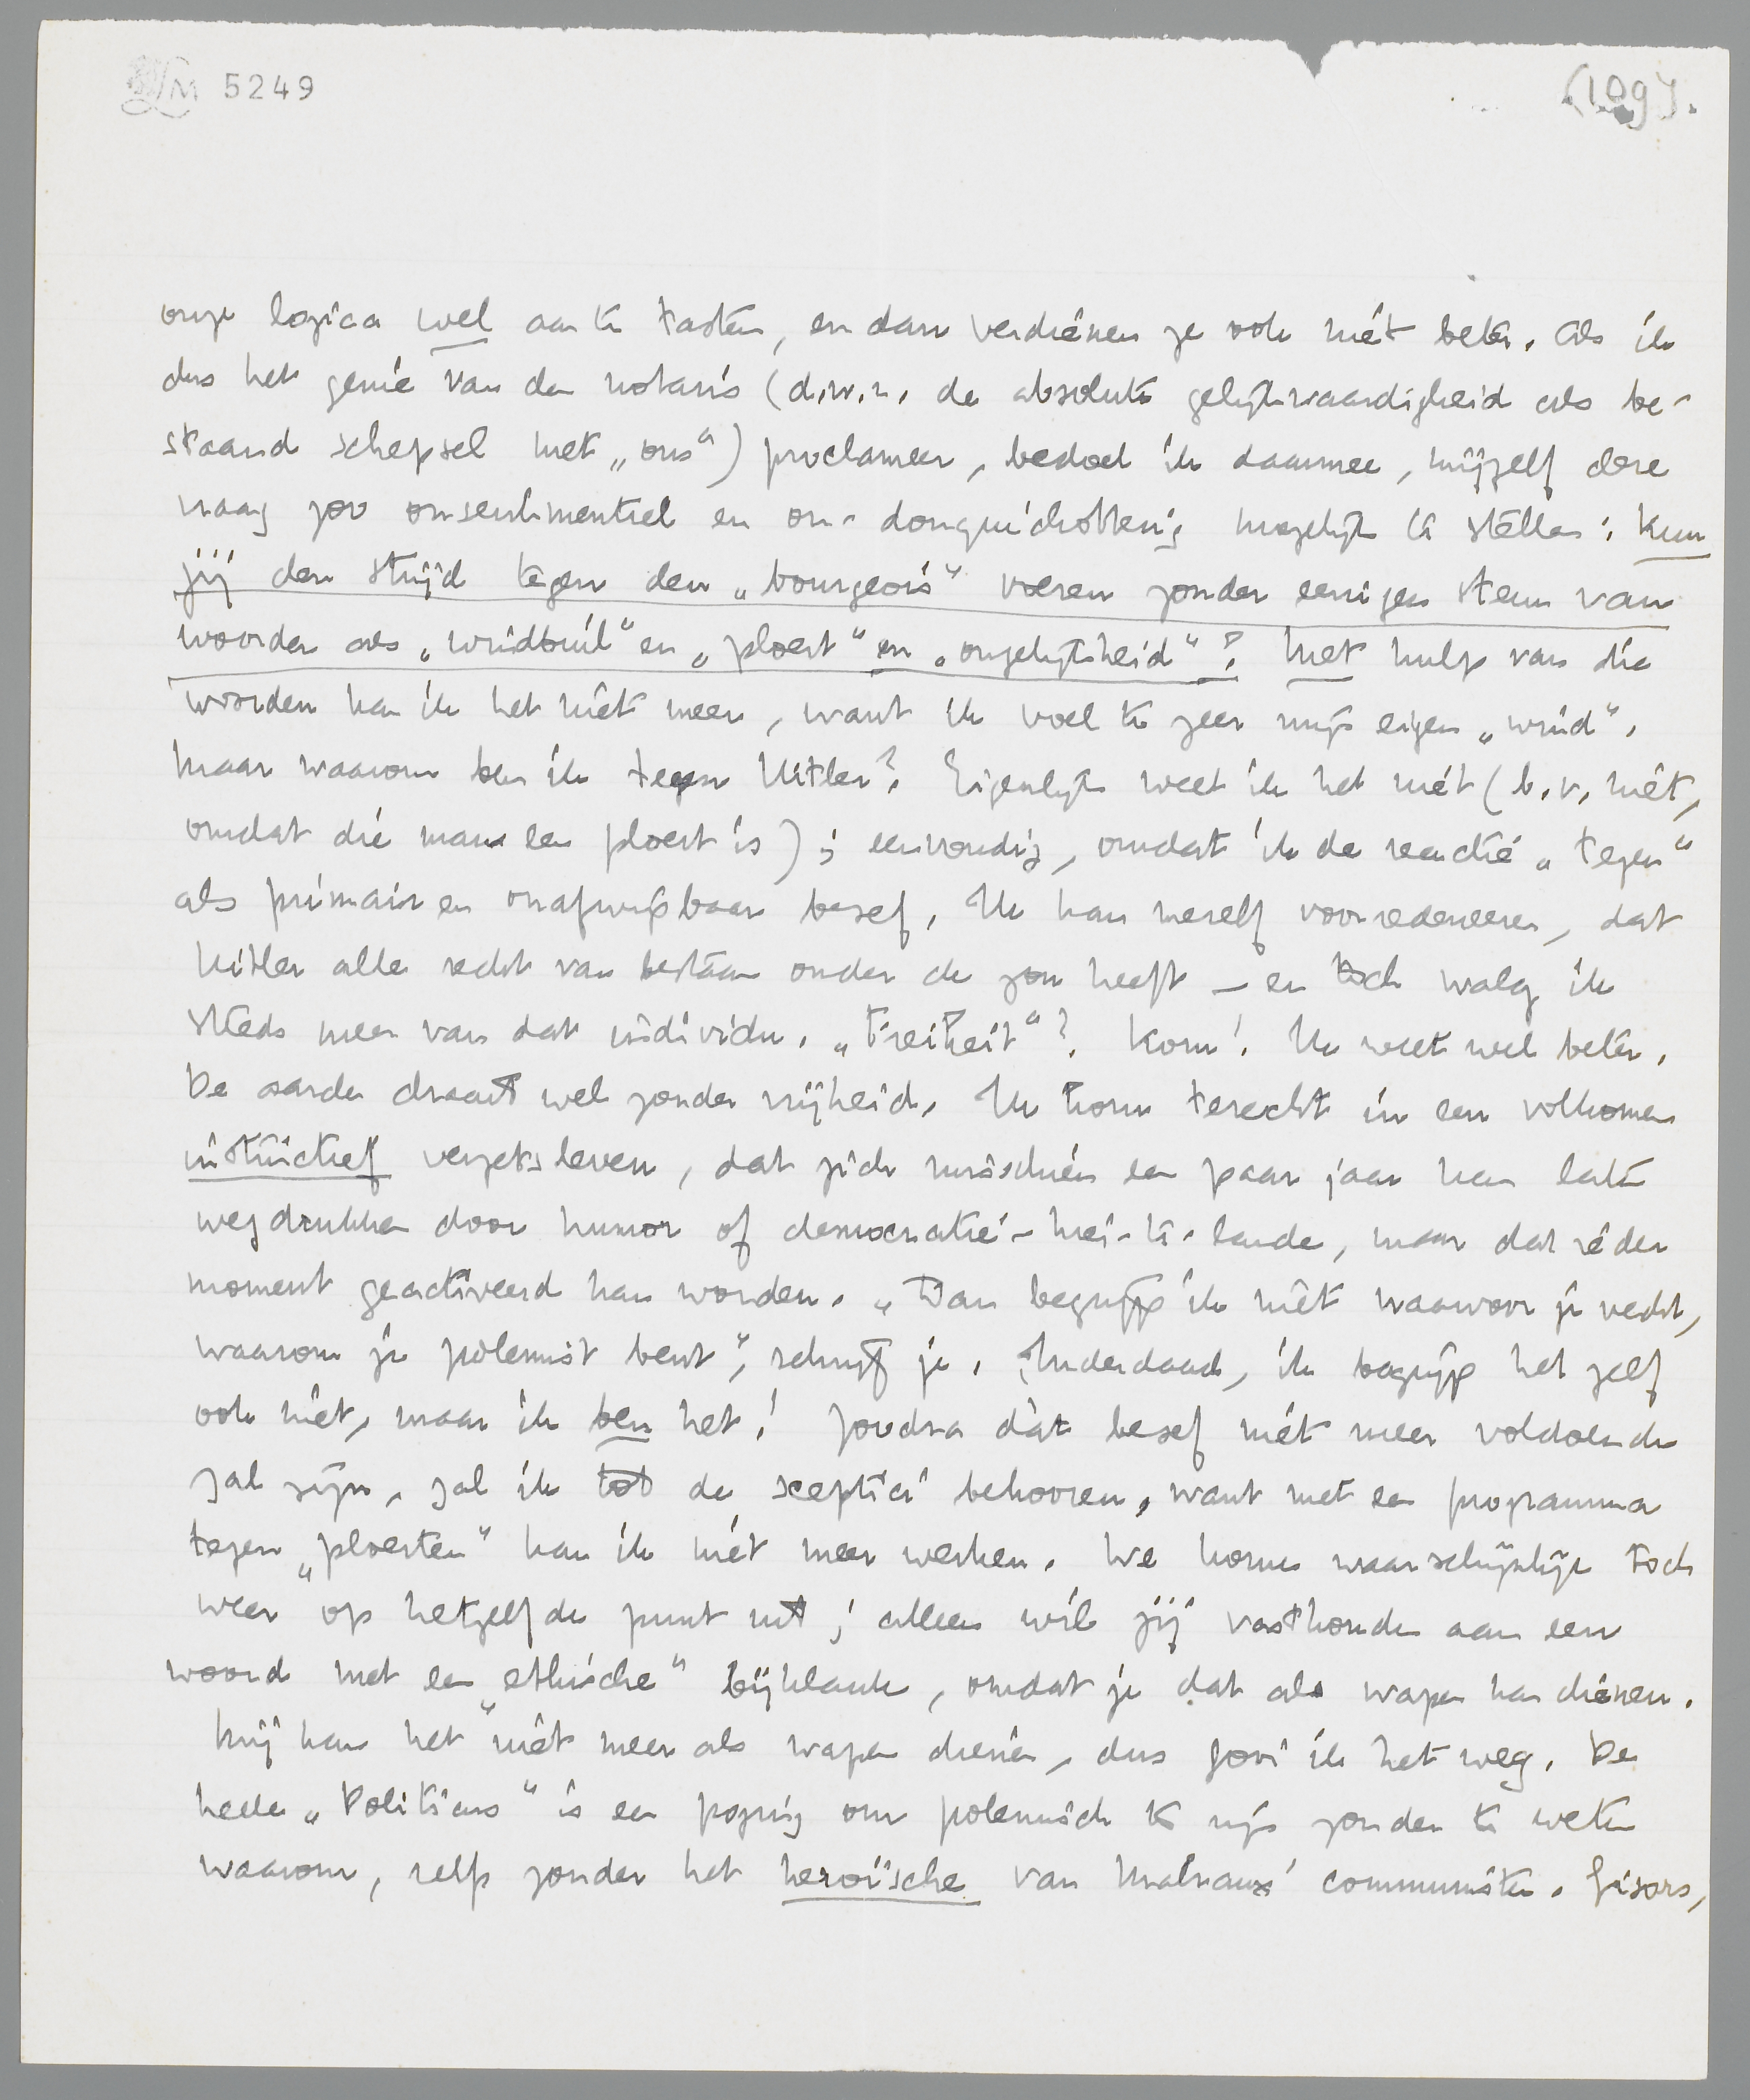 LM 5249
(109).
onze logica wel aan te tasten, en dan verdienen ze ook niet beter. Als ik
dus het genie van den notaris (d.w.z. de absolute gelijkwaardigheid als be-
staand schepsel met „ons") proclameer, bedoel ik daarmee, mijzelf deze
vraag zoo onsentimenteel en on-donquichotterig mogelijk te stellen: kun
jij den strijd tegen den „bourgeois" voeren zonder eenigen steun van
woorden als „windbuil" en „ploert" en „ongelijkheid"? Met hulp van die
woorden kan ik het niet meer, want ik voel te zeer mijn eigen „wind".
Maar waarom ben ik tegen Hitler? Eigenlijk weet ik het niet (b.v. niet,
omdat die man een ploert is); eenvoudig, omdat ik de reactie „tegen"
als primair en onafwijsbaar besef. Ik kan mezelf voorredeneeren, dat
Hitler alle recht van bestaan onder de zon heeft – en toch walg ik
steeds meer van dat individu. „Freiheit"? Kom! Ik weet wel beter.
De aarde draait wel zonder vrijheid. Ik kom terecht in een volkomen
instinctief verzetsleven, dat zich misschien een paar jaar kan laten
wegdrukken door humor of democratie-hier-te-lande, maar dat ieder
moment geactiveerd kan worden. „Dan begrijp ik niet waarvoor je vecht,
waarom je polemist bent", schrijf je. Inderdaad, ik begrijp het zelf
ook niet, maar ik ben het! Zoodra dàt besef niet meer voldoende
zal zijn, zal ik tot de sceptici behooren, want met een programma
tegen „ploerten" kan ik niet meer werken. We komen waarschijnlijk toch
weer op hetzelfde punt uit; alleen wil jij vasthouden aan een
woord met een „ethische" bijklank, omdat je dat als wapen kan dienen.
Mij kan het niet meer als wapen dienen, dus gooi ik het weg. De
heele „Politicus" is een poging om polemisch te zijn zonder te weten
waarom, zelfs zonder het heroïsche van Malraux' communisten. Gisors,